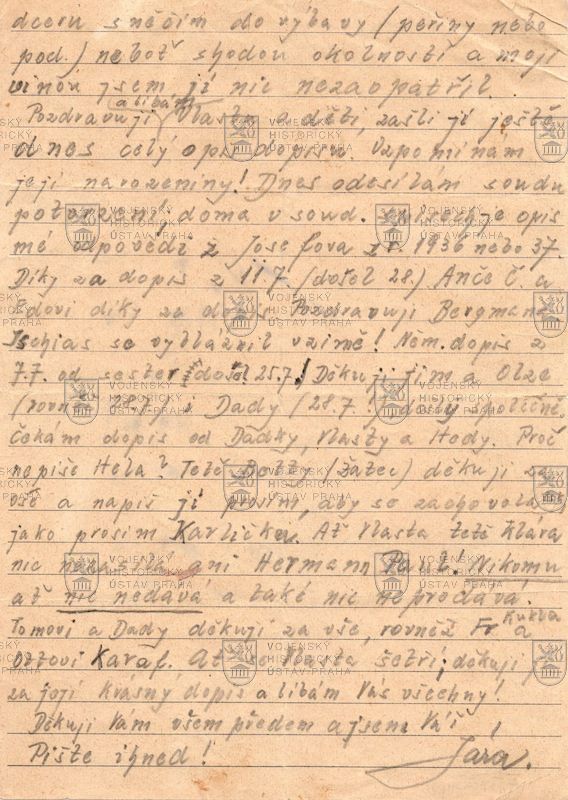 dceru s něčím do výbavy (peřiny nebo
pod.) neboť shodou okolností a mojí
vinou jsem jí nic nezaopatřil.
(a líbám)
Pozdravuji Vlastu a děti, zašli jí ještě
dnes celý opis dopisu. Vzpomínám
její narozeniny! Dnes odesílám soudu
potvrzení, doma v soud. spisech je opis
mé odpovědi z Josefova z r. 1936 nebo 37.
Díky za dopis z 11.7. (došel 28.) Anče Č. a
díky za Pozdravuji Bergmann
Ischias se vybláznil v zimě! Něm. dopis z
7.7. od sester došel 25.7.! Děkuji jim a Olze
(rovněž 28.7.) i Dady (28.7.!) došly společně.
Čekám dopis od Dádky, Vlasty a Hody. Proč
nepíše Hela? Tetě Boži (Žatec) děkuji za
vše a napiš jí prosím, aby se zachovala
jako prosím Karličku. Ať Vlasta tetě Klára
nic nezasílá ani Hermann Pavl. Nikomu
ať nic nedává a také nic neprodává.
Tomovi a Dady děkuji za vše, rovněž Fr. Kukla a
Ottovi Karaf. Ať se Vlasta šetří, děkuji jí
za její krásný dopis a líbám Vás všechny!
Děkuji Vám všem předem a jsem Váš
Pište ihned! Jára.
VOJENSKÝ
HISTORICKÝ
ÚSTAV PRAHA